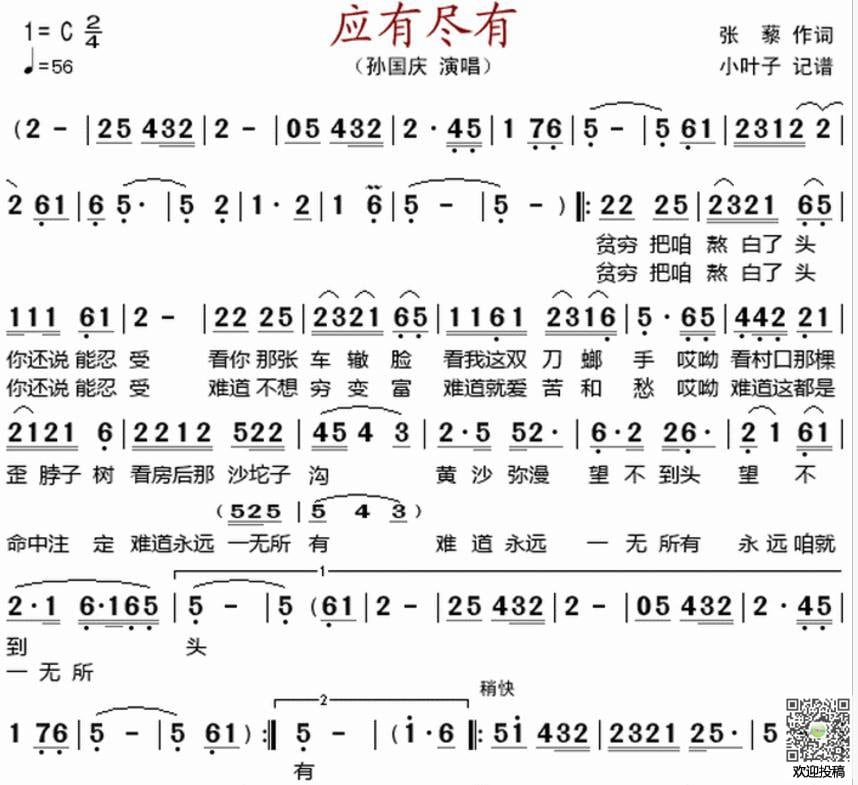 应有尽有
1= C 2/4
♩=56
（孙国庆 演唱）
张 藜 作词
小叶子 记谱
（2 - | 25 432 | 2 - | 05 432 | 2 · 45 | 1 76 | 5 - | 5 61 | 2312 2 |
2 61 | 6 5· | 5 2 | 1· 2 | 1 6 | 5 - | 5 - ）‖: 22 25 | 2321 65 |
贫穷 把咱 熬 白了 头
贫穷 把咱 熬 白了 头
111 61 | 2 - | 22 25 | 2321 65 | 1161 2316 | 5 · 65 | 442 21 |
你还说 能忍 受 看你 那张 车 辙 脸 看我这双 刀 螂 手 哎呦 看村口那棵
你还说 能忍 受 难道 不想 穷 变 富 难道就爱 苦 和 愁 哎呦 难道这都是
2121 6 | 2212 522 | 45 4 3 | 2·5 52· | 6·2 26· | 2 1 61 |
歪 脖子 树 看房后那 沙坨子 沟 黄 沙 弥漫 望 不 到头 望 不
（525 | 5 4 3）
命中注 定 难道永远 一无所 有 难 道 永远 一 无 所有 永 远 咱就
1
2·1 6·165 | 5 - | 5 （61 | 2 - | 25 432 | 2 - | 05 432 | 2 · 45 |
到 头
一 无 所
2 稍快
1 76 | 5 - | 5 61）:‖ 5 - | （1·6 ‖: 51 432 | 2321 25· | 5 -
有
欢迎投稿